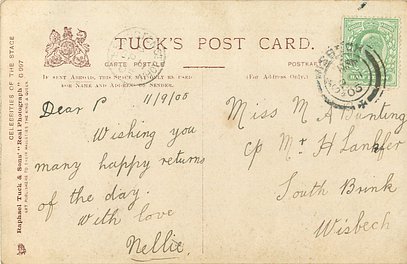 TUCK'S POST CARD.
CARTE POSTALE
POSTKAR
IF SENT ABROAD, THIS SPACE MAY NOT BE USED
FOR NAME AND ADDRESS OF SENDER.
(For Address Only.)
CELEBRITIES OF THE STAGE
Raphael Tuck & Sons' "Real Photograph"
ART PUBLISHERS TO THEIR MAJESTIES THE KING & QUEEN
Dear P 11/9/05
Wishing you
many happy returns
of the day.
With love
Nellie.
Miss M A Bunting
c/o Mr H
South Brink
Wisbech